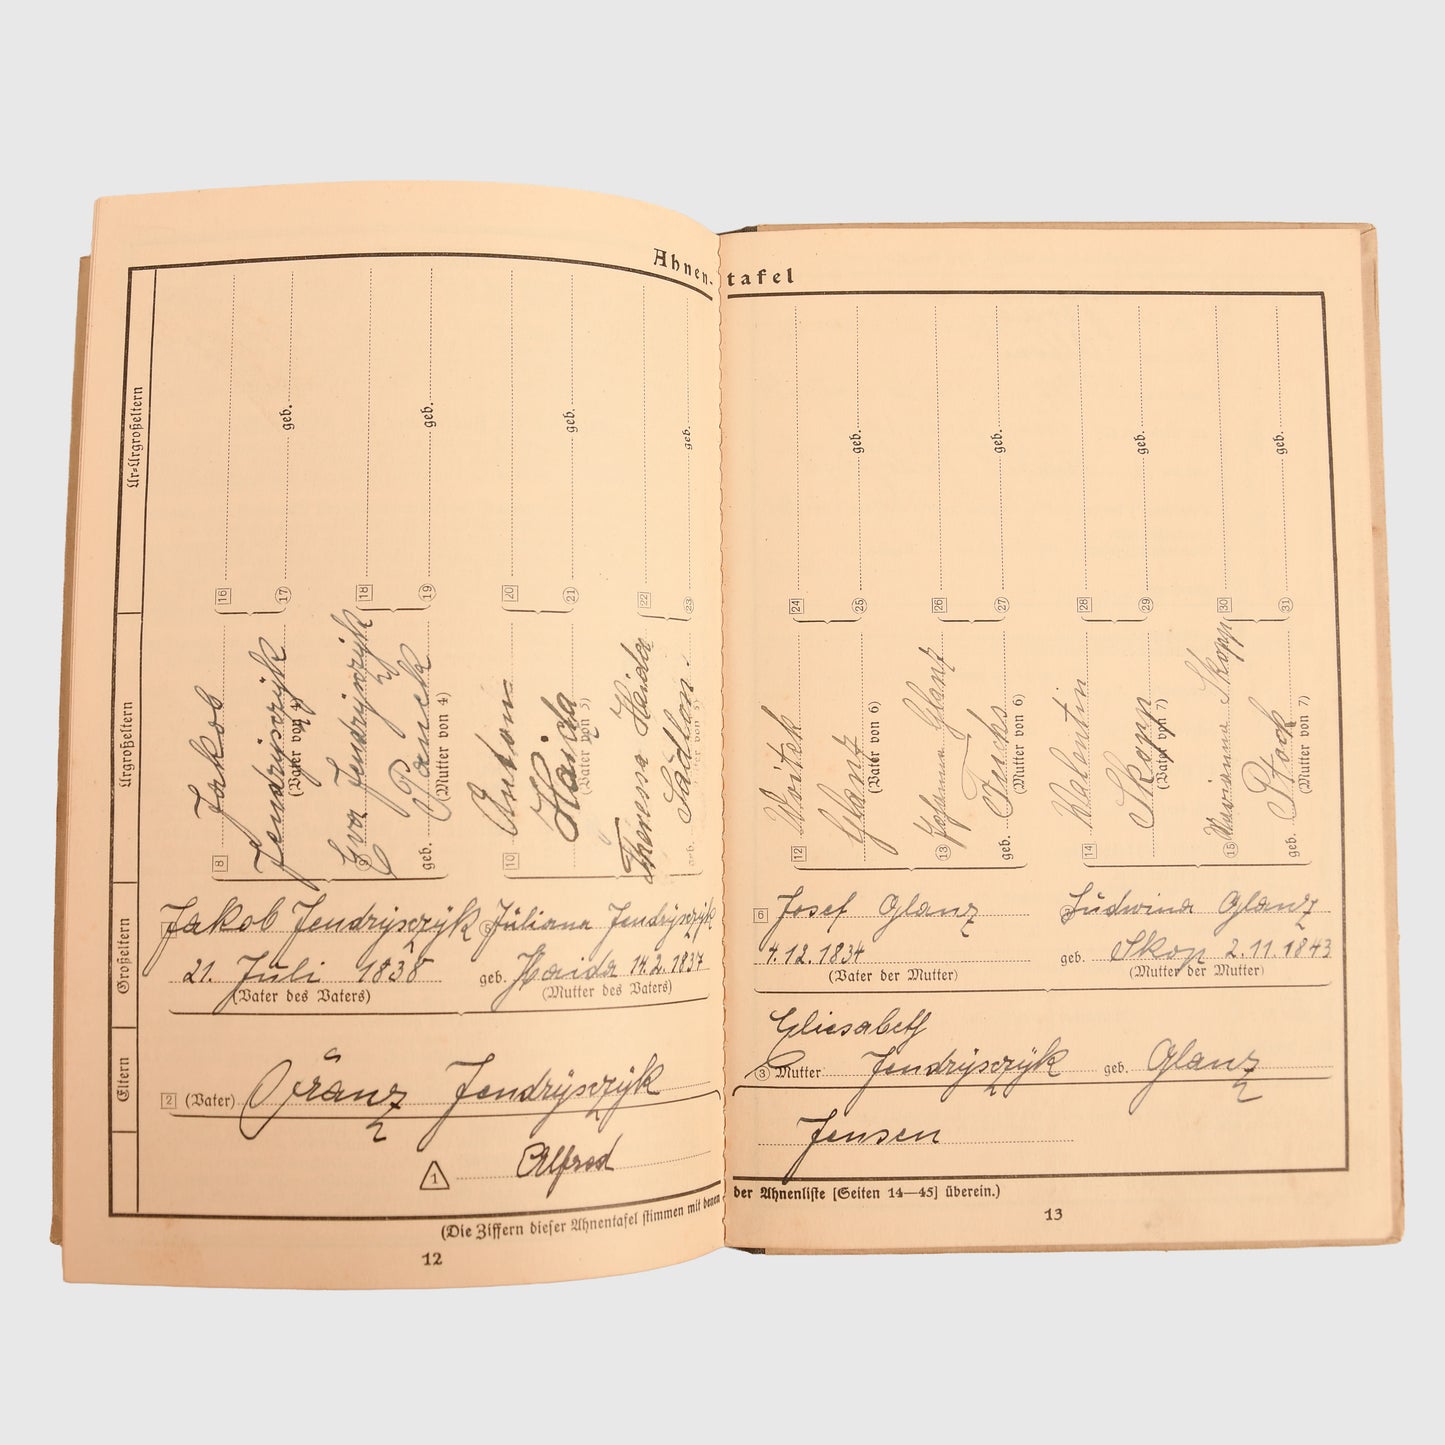 Ahnen-tafel
Ur-Urgroßeltern
16
17 geb.
18
19 geb.
20
21 geb.
22
23 geb.
24
25 geb.
26
27 geb.
28
29 geb.
30
31 geb.
Urgroßeltern
8 Jakob
Jendryszyk
(Vater von 4)
9 Eva Jendryszyk
geb. Panek
(Mutter von 4)
10 Anton
Haida
(Vater von 5)
Theressa Haida
geb. Sadlon
(Mutter von 5)
12 Woitek
Glanz
(Vater von 6)
13 Johanna Glanz
geb.
(Mutter von 6)
14 Valentin
Skopp
(Vater von 7)
15 Marianna Skopp
geb. Ptock
(Mutter von 7)
Großeltern
Jakob Jendryszyk
21. Juli 1838
(Vater des Vaters)
5 Juliana Jendryszyk
geb. Haida 14.2.1837
(Mutter des Vaters)
6 Josef Glanz
4.12.1834
(Vater der Mutter)
Ludwina Glanz
geb. Skop 2.11.1843
(Mutter der Mutter)
Eltern
2 (Vater) Franz Jendryszyk
Eliesabeth
3 Mutter Jendryszyk geb. Glanz
1 Alfred Jensen
(Die Ziffern dieser Ahnentafel stimmen mit denen der Ahnenliste [Seiten 14—45] überein.)
12
13